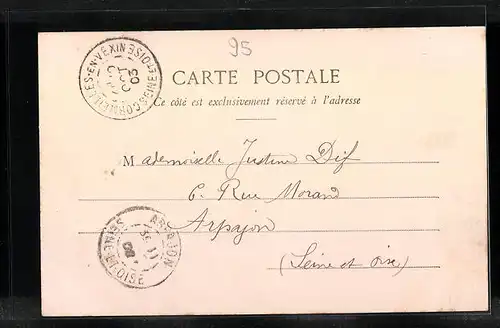 95
CORMEILLES-EN-VEXIN SEINE-ET-OISE
OCT
03
CARTE POSTALE
Ce côté est exclusivement réservé à l'adresse
Mademoiselle Justine Dif
6. Rue Morand
Arpajon
(Seine et oise)
ARPAJON
SEINE-ET-OISE